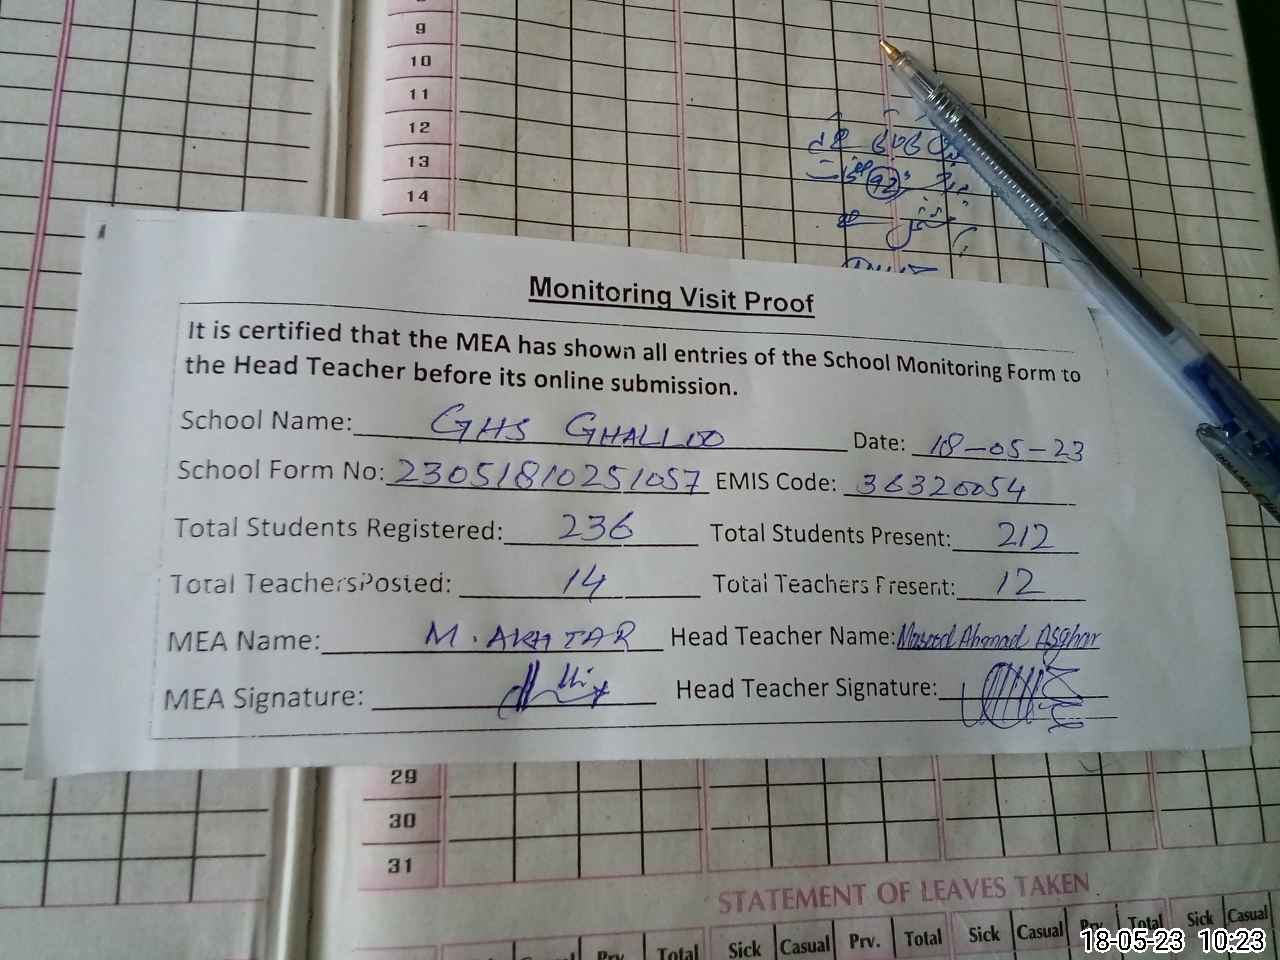 9
10
11
12
13
14
Monitoring Visit Proof
It is certified that the MEA has shown all entries of the School Monitoring Form to
the Head Teacher before its online submission.
School Name: GHS GHALLOO Date: 18-05-23
School Form No: 23051810251057 EMIS Code: 36320054
Total Students Registered: 236 Total Students Present: 212
Total TeachersPosted: 14 Total Teachers Present: 12
MEA Name: M. AKHTAR Head Teacher Name: Masood Ahmad Asghar
MEA Signature: Head Teacher Signature:
29
30
31
STATEMENT OF LEAVES TAKEN
Prv. Total Sick Casual Prv. Total Sick Casual Prv. Total Sick Casual
18-05-23 10:23